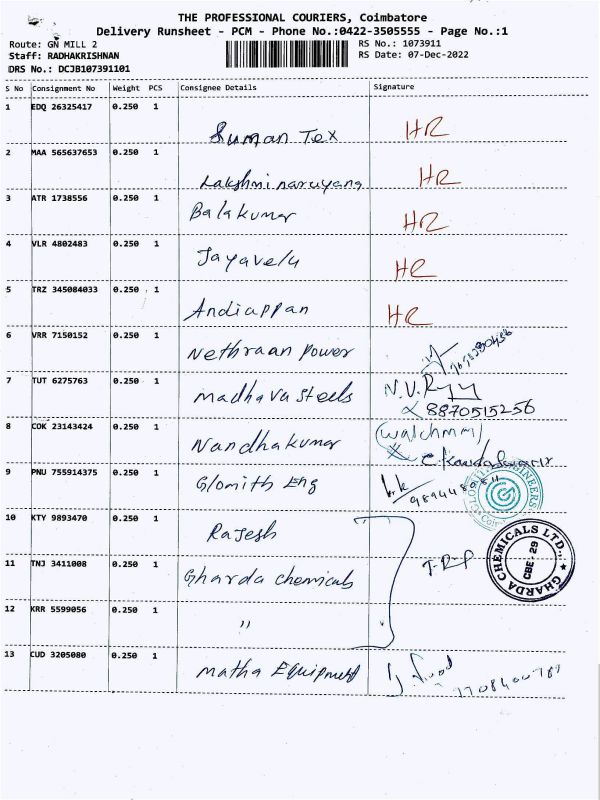 THE PROFESSIONAL COURIERS, Coimbatore
Delivery Runsheet - PCM - Phone No.:0422-3505555 - Page No.:1
Route: GN MILL 2
RS No.: 1073911
Staff: RADHAKRISHNAN
RS Date: 07-Dec-2022
DRS No.: DCJB107391101
S No Consignment No Weight PCS Consignee Details Signature
1 EDQ 26325417 0.250 1
Suman Tex HR
2 MAA 565637653 0.250 1
Lakshminarayana HR
3 ATR 1738556 0.250 1
Balakumar HR
4 VLR 4802483 0.250 1
Jayavelu HR
5 TRZ 345084033 0.250 1
Andiappan HR
6 VRR 7150152 0.250 1
Nethraan Power
7 TUT 6275763 0.250 1
madhava steels N.V.
8870515256
8 COK 23143424 0.250 1
Nandhakumar (Watchman)
9 PNU 755914375 0.250 1
Glomith Eng
10 KTY 9893470 0.250 1
Rajesh
11 TNJ 3411008 0.250 1
Gharda chemicals
GHARDA CHEMICALS LTD.,
CBE - 29
12 KRR 5599056 0.250 1
"
13 CUD 3205080 0.250 1
matha Equipment